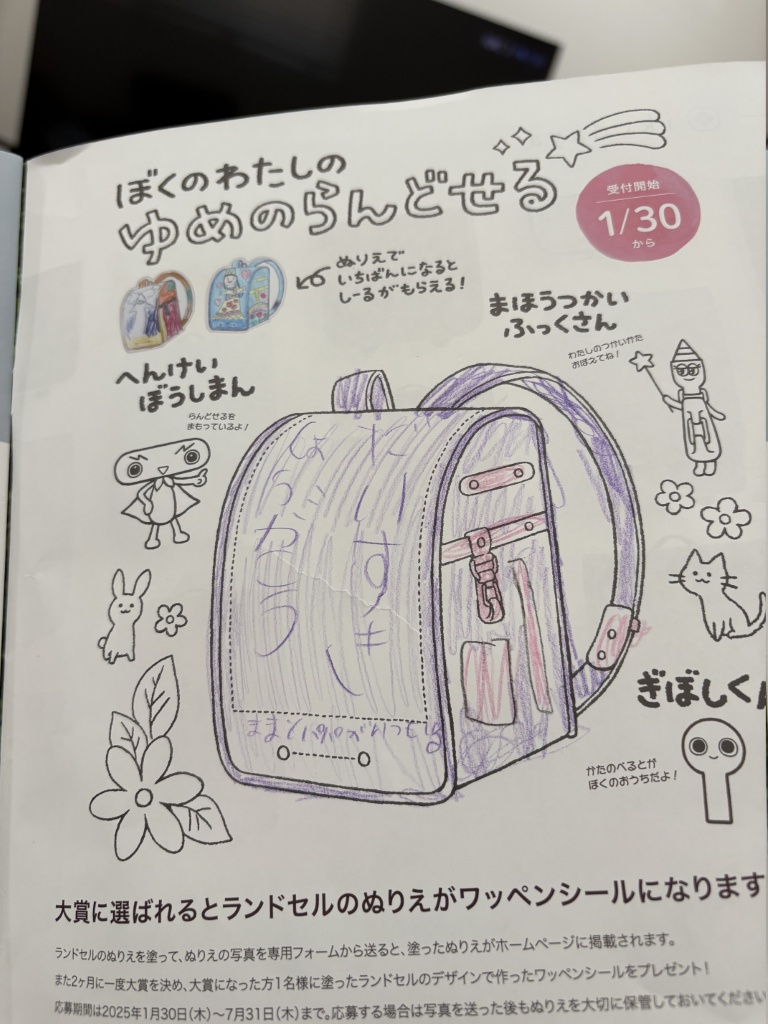 ぼくのわたしの
ゆめのらんどせる
受付開始
1/30
から
ぬりえで
いちばんになると
しーるがもらえる！
まほうつかい
ふっくさん
わたしのつかいかた
おぼえてね！
へんけい
ぼうしまん
らんどせるを
まもっているよ！
だいすき
しょうがっこう
ぎぼしくん
かたのべるとが
ぼくのおうちだよ！
大賞に選ばれるとランドセルのぬりえがワッペンシールになります
ランドセルのぬりえを塗って、ぬりえの写真を専用フォームから送ると、塗ったぬりえがホームページに掲載されます。
また2ヶ月に一度大賞を決め、大賞になった方1名様に塗ったランドセルのデザインで作ったワッペンシールをプレゼント！
応募期間は2025年1月30日(木)～7月31日(木)まで。応募する場合は写真を送った後もぬりえを大切に保管しておいてください